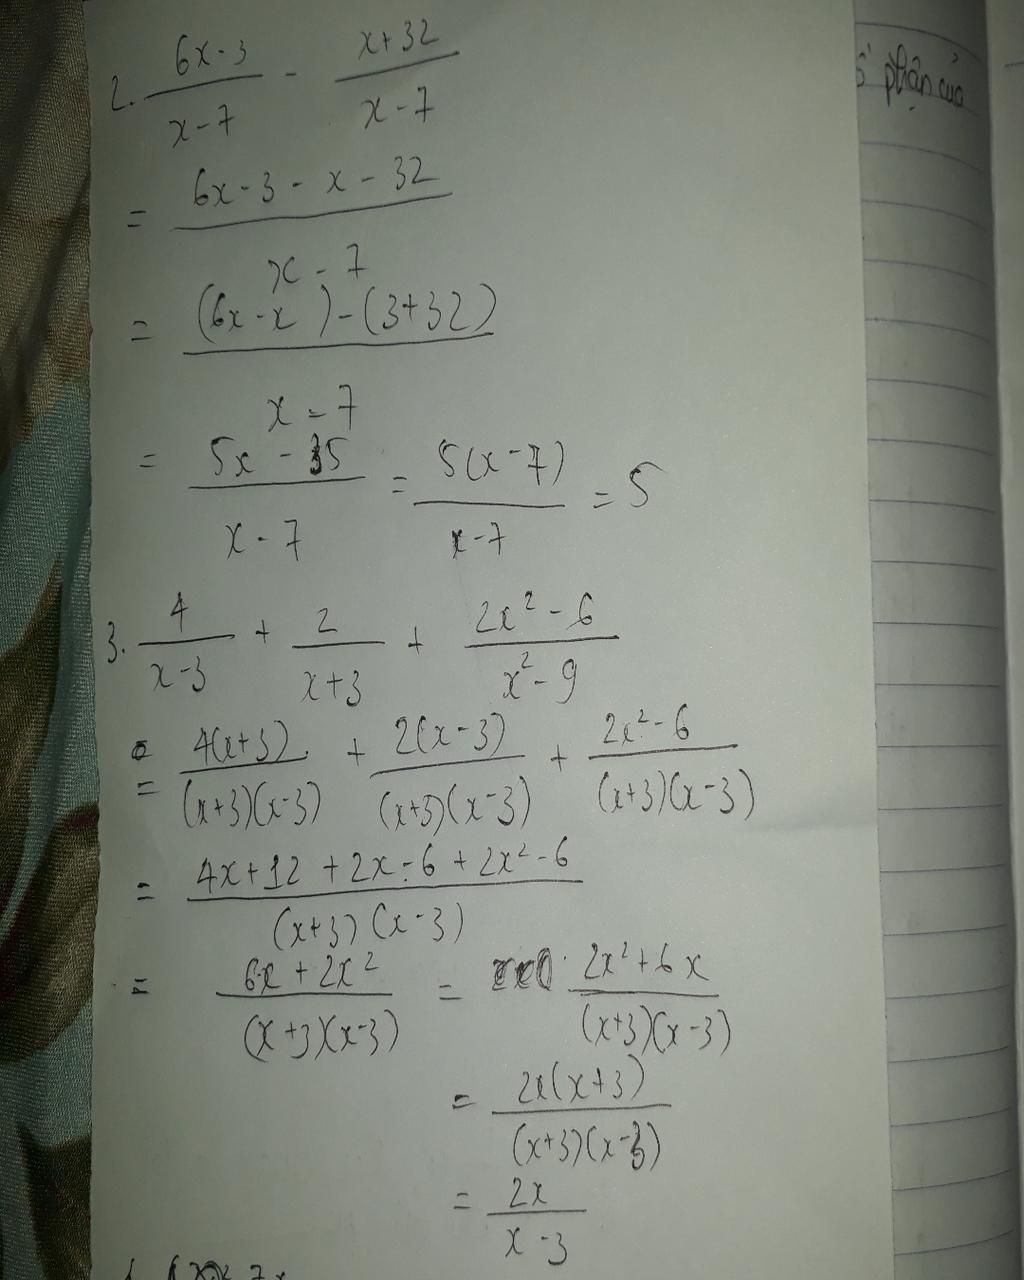 2. (6x-3)/(x-7) - (x+32)/(x-7)
= (6x-3-x-32)/(x-7)
= ((6x-x)-(3+32))/(x-7)
= (5x-35)/(x-7) = 5(x-7)/(x-7) = 5
3. 4/(x-3) + 2/(x+3) + (2x²-6)/(x²-9)
= 4(x+3)/((x+3)(x-3)) + 2(x-3)/((x+3)(x-3)) + (2x²-6)/((x+3)(x-3))
= (4x+12+2x-6+2x²-6)/((x+3)(x-3))
= (6x+2x²)/((x+3)(x-3)) = (2x²+6x)/((x+3)(x-3))
= 2x(x+3)/((x+3)(x-3))
= 2x/(x-3)
phận của